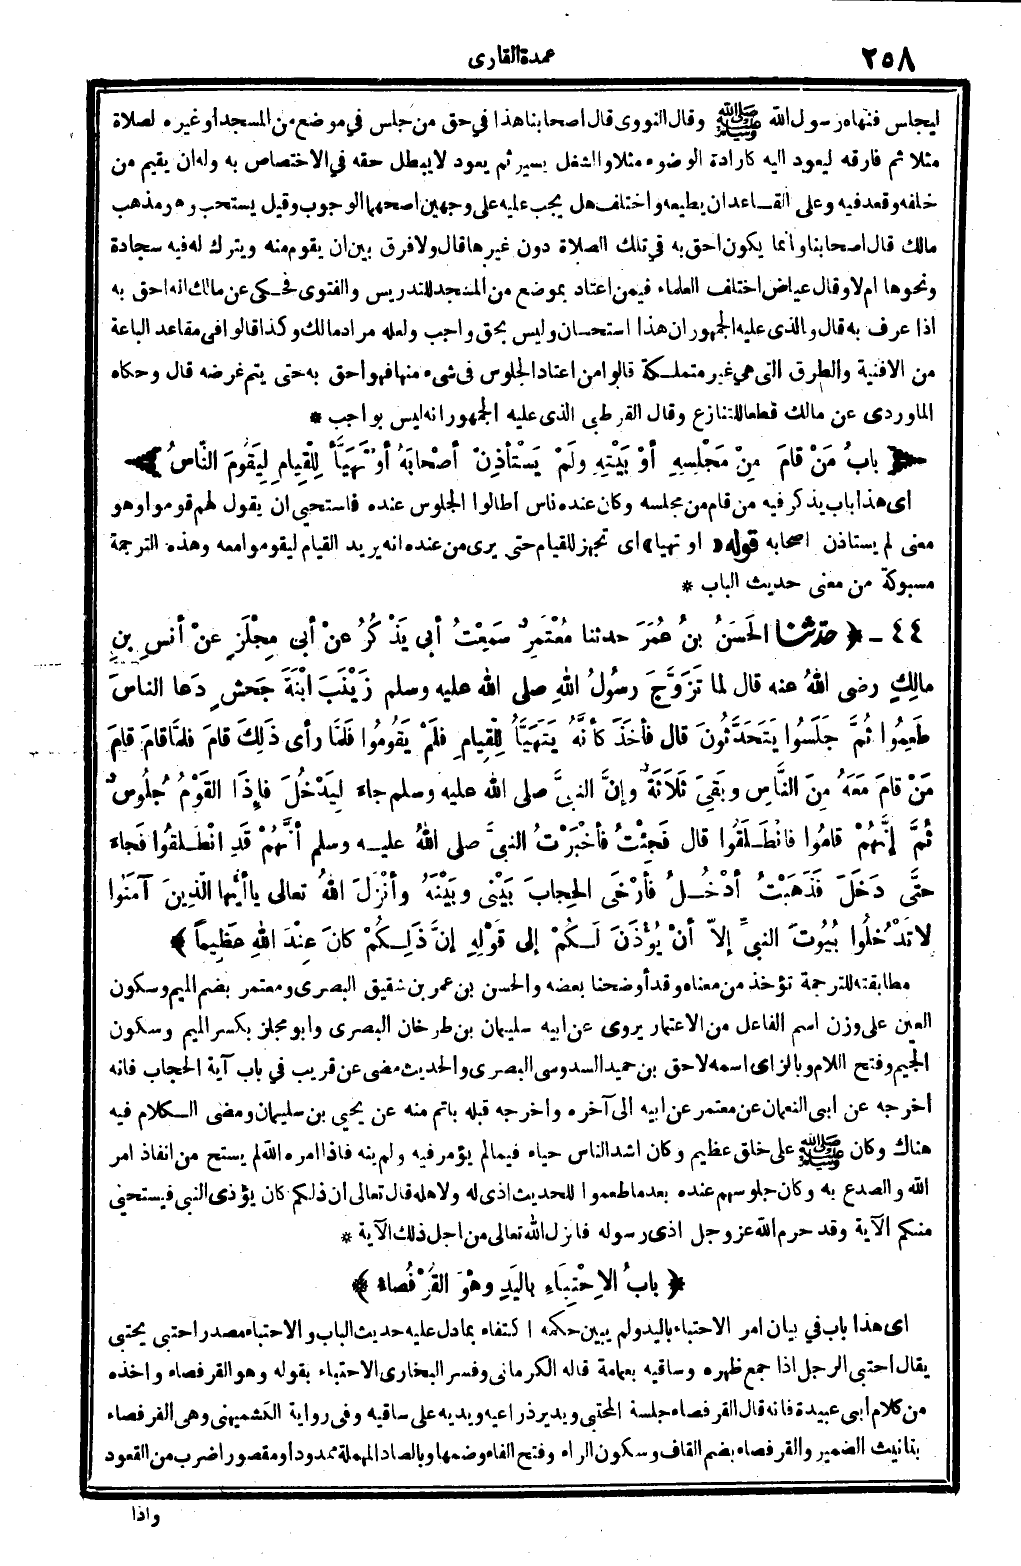 ٢٥٨
عمدة القارى
ليجلس فنهاه رسول الله ﷺ وقال النووى قال اصحابنا هذا فى حق من جلس فى موضع من المسجد أو غيره لصلاة
مثلا ثم فارقه ليعود اليه كارادة الوضوء مثلا والشغل يسير ثم يعود لا يبطل حقه فى الاختصاص به وله ان يقيم من
خلفه وقعد فيه وعلى القاعد ان يطيعه واختلف هل يجب عليه على وجهين اصحهما الوجوب وقيل يستحب وهو مذهب
مالك قال اصحابنا وانما يكون احق به فى تلك الصلاة دون غيرها قال ولا فرق بين ان يقوم منه ويترك له فيه سجادة
ونحوها ام لا وقال عياض اختلف العلماء فيمن اعتاد بموضع من المسجد للتدريس والفتوى فحكى عن مالك انه احق به
اذا عرف به قال والذى عليه الجمهور ان هذا استحسان وليس بحق واجب ولعله مراد مالك وكذا قالوا فى مقاعد الباعة
من الافنية والطرق التى هى غير متملكة قالوا من اعتاد الجلوس فى شىء منها فهو احق به حتى يتم غرضه قال وحكاه
الماوردى عن مالك قطعا للتنازع وقال القرطبى الذى عليه الجمهور انه ليس بواجب *
﴿ بابُ مَنْ قامَ مِنْ مَجْلِسِهِ أوْ بَيْتِهِ ولَمْ يَسْتَأْذِنْ أصْحابَهُ أوْ تَهَيَّأَ لِلْقِيامِ لِيَقُومَ النَّاسُ ﴾
اى هذا باب يذكر فيه من قام من مجلسه وكان عنده ناس أطالوا الجلوس عنده فاستحيى ان يقول لهم قوموا وهو
معنى لم يستاذن اصحابه قوله «او تهيا» اى تجهز للقيام حتى يرى من عنده انه يريد القيام ليقوموا معه وهذه الترجمة
مسبوكة من معنى حديث الباب *
٤٤ - ﴿ حدثنا الحَسَنُ بنُ عُمَرَ حدثنا مُعْتَمِرٌ سَمِعْتُ أبى يَذْكُرُ عنْ أبى مِجْلَزٍ عنْ أنَسِ بنِ
مالِكٍ رضى اللهُ عنه قال لما تَزَوَّجَ رسولُ اللهِ صلى الله عليه وسلم زَيْنَبَ ابْنَةَ جَحْشٍ دَعا الناسَ
طَعِمُوا ثُمَّ جَلَسُوا يَتَحَدَّثُونَ قال فأخَذَ كأنَّهُ يَتَهَيَّأُ لِلْقِيامِ فلَمْ يَقُومُوا فلَمَّا رأى ذَلِكَ قامَ فلمَّا قامَ قامَ
مَنْ قامَ مَعَهُ مِنَ النَّاسِ وبَقِىَ ثَلَاثَةٌ وإنَّ النبىَّ صلى الله عليه وسلم جاءَ لِيَدْخُلَ فإذَا القَوْمُ جُلُوسٌ
ثُمَّ إنَّهُمْ قامُوا فانْطَلَقُوا قال فَجِئْتُ فأخْبَرْتُ النبىَّ صلى اللهُ عليه وسلم أنَّهُمْ قَدِ انْطَلَقُوا فَجاءَ
حتَّى دَخَلَ فَذَهَبْتُ أدْخُلُ فأرْخَى الحِجابَ بَيْنى وبَيْنَهُ وأنْزَلَ اللهُ تعالى ياأيُّها الَّذِينَ آمَنُوا
لا تَدْخُلُوا بُيُوتَ النبىِّ إلاّ أنْ يُؤْذَنَ لَكُمْ إلى قَوْلِهِ إنَّ ذَلِكُمْ كانَ عِنْدَ اللهِ عَظِيماً ﴾
مطابقته للترجمة تؤخذ من معناه وقد أوضحنا بعضه والحسن بن عمر بن شقيق البصرى ومعتمر بضم الميم وسكون
العين على وزن اسم الفاعل من الاعتمار يروى عن ابيه سليمان بن طرخان البصرى وابو مجلز بكسر الميم وسكون
الجيم وفتح اللام وبالزاى اسمه لاحق بن حميد السدوسى البصرى والحديث مضى عن قريب فى باب آية الحجاب فانه
أخرجه عن ابى النعمان عن معتمر عن ابيه الى آخره واخرجه قبله باتم منه عن يحيى بن سليمان ومضى الكلام فيه
هناك وكان ﷺ على خلق عظيم وكان اشد الناس حياء فيما لم يؤمر فيه ولم ينه فاذا امره الله لم يستح من انفاذ امر
الله والصدع به وكان جلوسهم عنده بعد ما طعموا للحديث اذى له ولاهله قال تعالى ان ذلكم كان يؤذى النبى فيستحيى
منكم الآية وقد حرم الله عز وجل اذى رسوله فانزل الله تعالى من اجل ذلك الآية *
﴿ بابُ الاِحْتِبَاءِ باليَدِ وهْوَ القُرْفُصاءُ ﴾
اى هذا باب فى بيان امر الاحتباء باليد ولم يبين حكمه اكتفاء بما دل عليه حديث الباب والاحتباء مصدر احتبى يحتبى
يقال احتبى الرجل اذا جمع ظهره وساقيه بعمامة قاله الكرمانى وفسر البخارى الاحتباء بقوله وهو القرفصاء واخذه
من كلام أبى عبيدة فانه قال القرفصاء جلسة المحتبى ويدير ذراعيه ويديه على ساقيه وفى رواية الكشميهنى وهى القرفصاء
بتانيث الضمير والقرفصاء بضم القاف وسكون الراء وفتح الفاء وضمها وبالصاد المهملة ممدودا ومقصورا ضرب من القعود
واذا